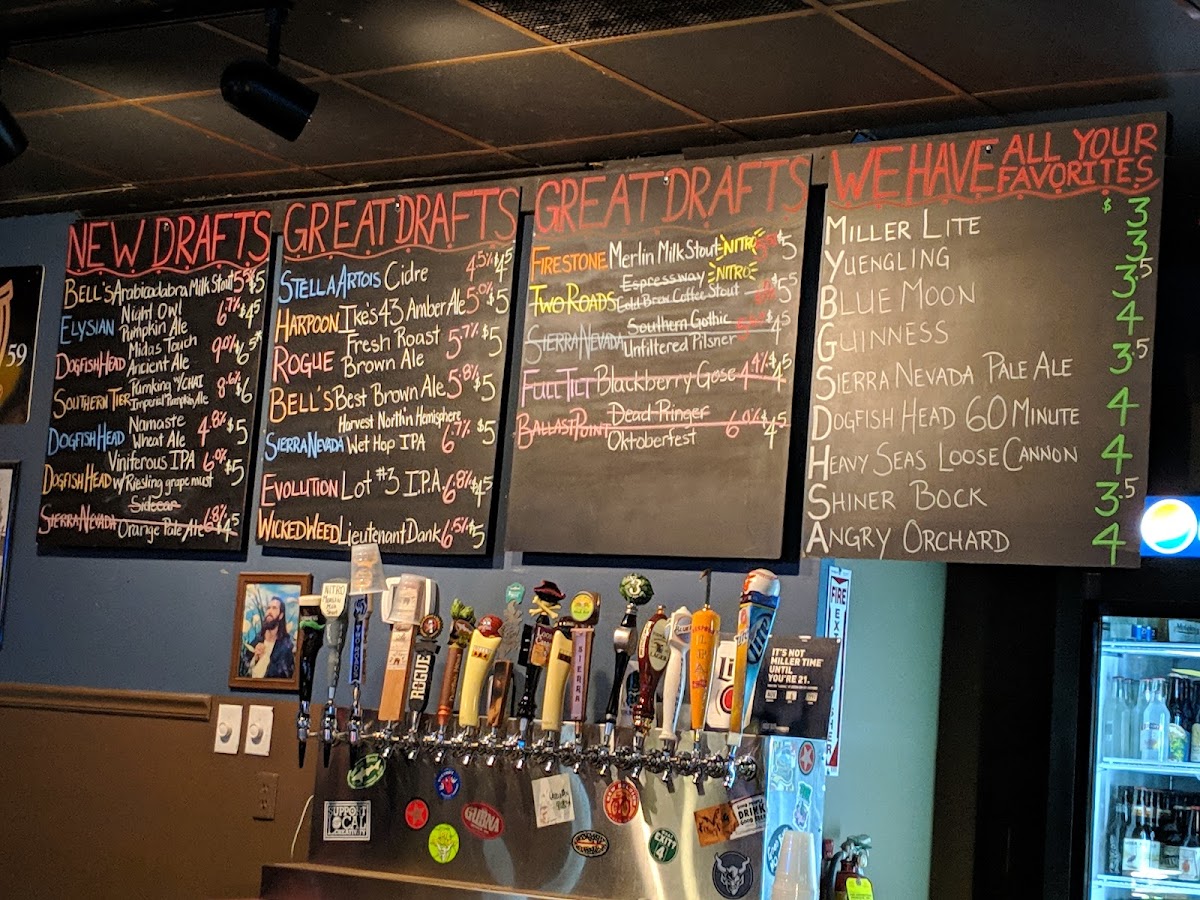 NEW DRAFTS
BELL'S Arabicadabra Milk Stout 5.5% $5
ELYSIAN Night Owl Pumpkin Ale 6.7% $4.5
DOGFISH HEAD Midas Touch Ancient Ale 9.0% $6.5
SOUTHERN TIER Pumking w/CHAI Imperial Pumpkin Ale 8.6% $6
DOGFISH HEAD Namaste Wheat Ale 4.8% $5
DOGFISH HEAD Viniferous IPA w/Riesling grape must 6.0% $5
SIERRA NEVADA Sidecar Orange Pale Ale 6.8% $4.5
GREAT DRAFTS
STELLA ARTOIS Cidre 4.5% $4.5
HARPOON Ike's 43 Amber Ale 5.0% $5
ROGUE Fresh Roast Brown Ale 5.7% $5
BELL'S Best Brown Ale 5.8% $5
SIERRA NEVADA Harvest North'n Hemisphere Wet Hop IPA 6.7% $5
EVOLUTION Lot #3 I.P.A 6.8% $4.5
WICKED WEED Lieutenant Dank 6.5% $5
GREAT DRAFTS
FIRESTONE Merlin Milk Stout NITRO $5
TWO ROADS Espressway NITRO Cold Brew Coffee Stout $5
SIERRA NEVADA Southern Gothic Unfiltered Pilsner $4.5
FULL TILT Blackberry Gose 4.4% $4.5
BALLAST POINT Dead Ringer Oktoberfest 6.0% $4.5
WE HAVE ALL YOUR FAVORITES
MILLER LITE $3
YUENGLING 3
BLUE MOON 3.5
GUINNESS 4
SIERRA NEVADA PALE ALE 3.5
DOGFISH HEAD 60 MINUTE 4
HEAVY SEAS LOOSE CANNON 4
SHINER BOCK 3.5
ANGRY ORCHARD 4
59
NITRO
ROGUE
SIERRA
3
IPA
LITE
IT'S NOT
MILLER TIME
UNTIL
YOU'RE 21.
FIRE
SUPPORT
LOCAL
GUBNA
DRINK